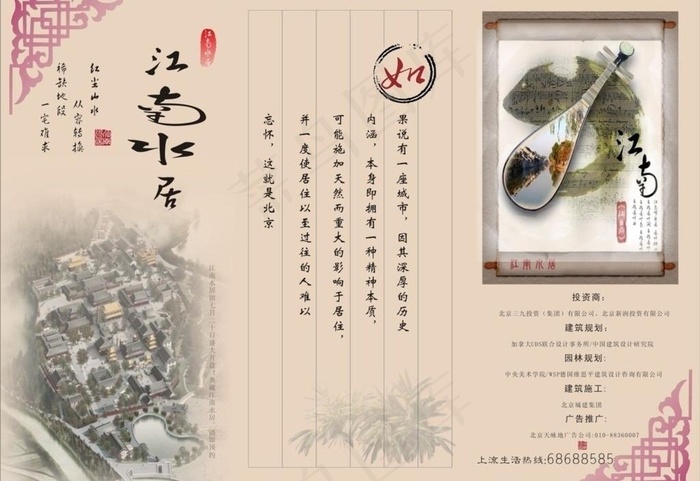 江南水居
红尘山水
从容转换
稀缺地段
一宅难求
江南水居
如
果说有一座城市，因其深厚的历史
内涵，本身即拥有一种精神本质，
可能施加天然而重大的影响于居住，
并一度使居住以至过往的人难以
忘怀，这就是北京
江南
江南水居
投资商：
北京三九投资（集团）有限公司、北京新润投资有限公司
建筑规划：
加拿大UDS联合设计事务所/中国建筑设计研究院
园林规划：
中央美术学院/WSP德国维思平建筑设计咨询有限公司
建筑施工：
北京城建集团
广告推广：
北京天味地广告公司:010-88360007
上流生活热线:68688585